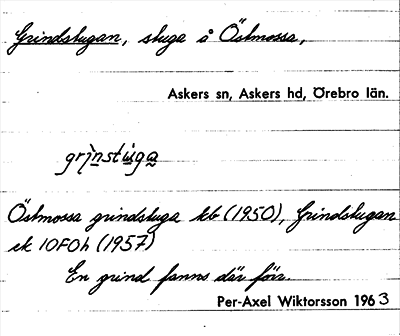 Grindstugan, stuga å Östmossa,
Askers sn, Askers hd, Örebro län.
gri̖nstùga
Östmossa grindstuga kb (1950), Grindstugan
ek 10F0h (1957)
En grind fanns där förr.
Per-Axel Wiktorsson 1963